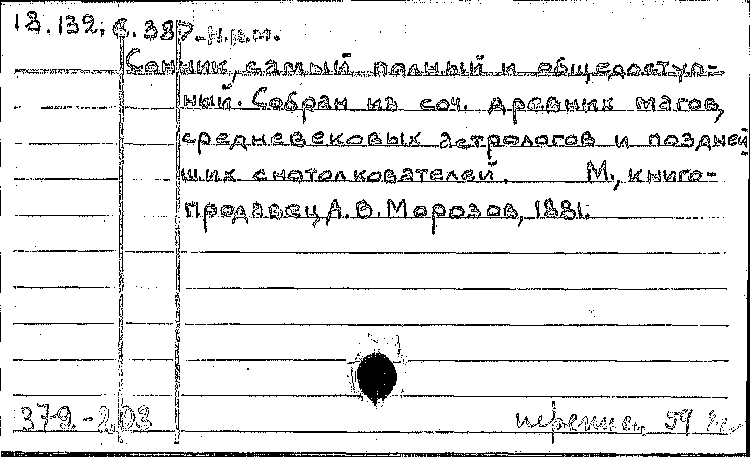 18.132; 6.387.
Сонник, самый полный и общедоступ-
ный. Собран из соч. древних магов,
средневековых астрологов и поздней
ших снотолкователей. М., книго-
продавец А. В. Морозов, 1881.
379.-2,03 59